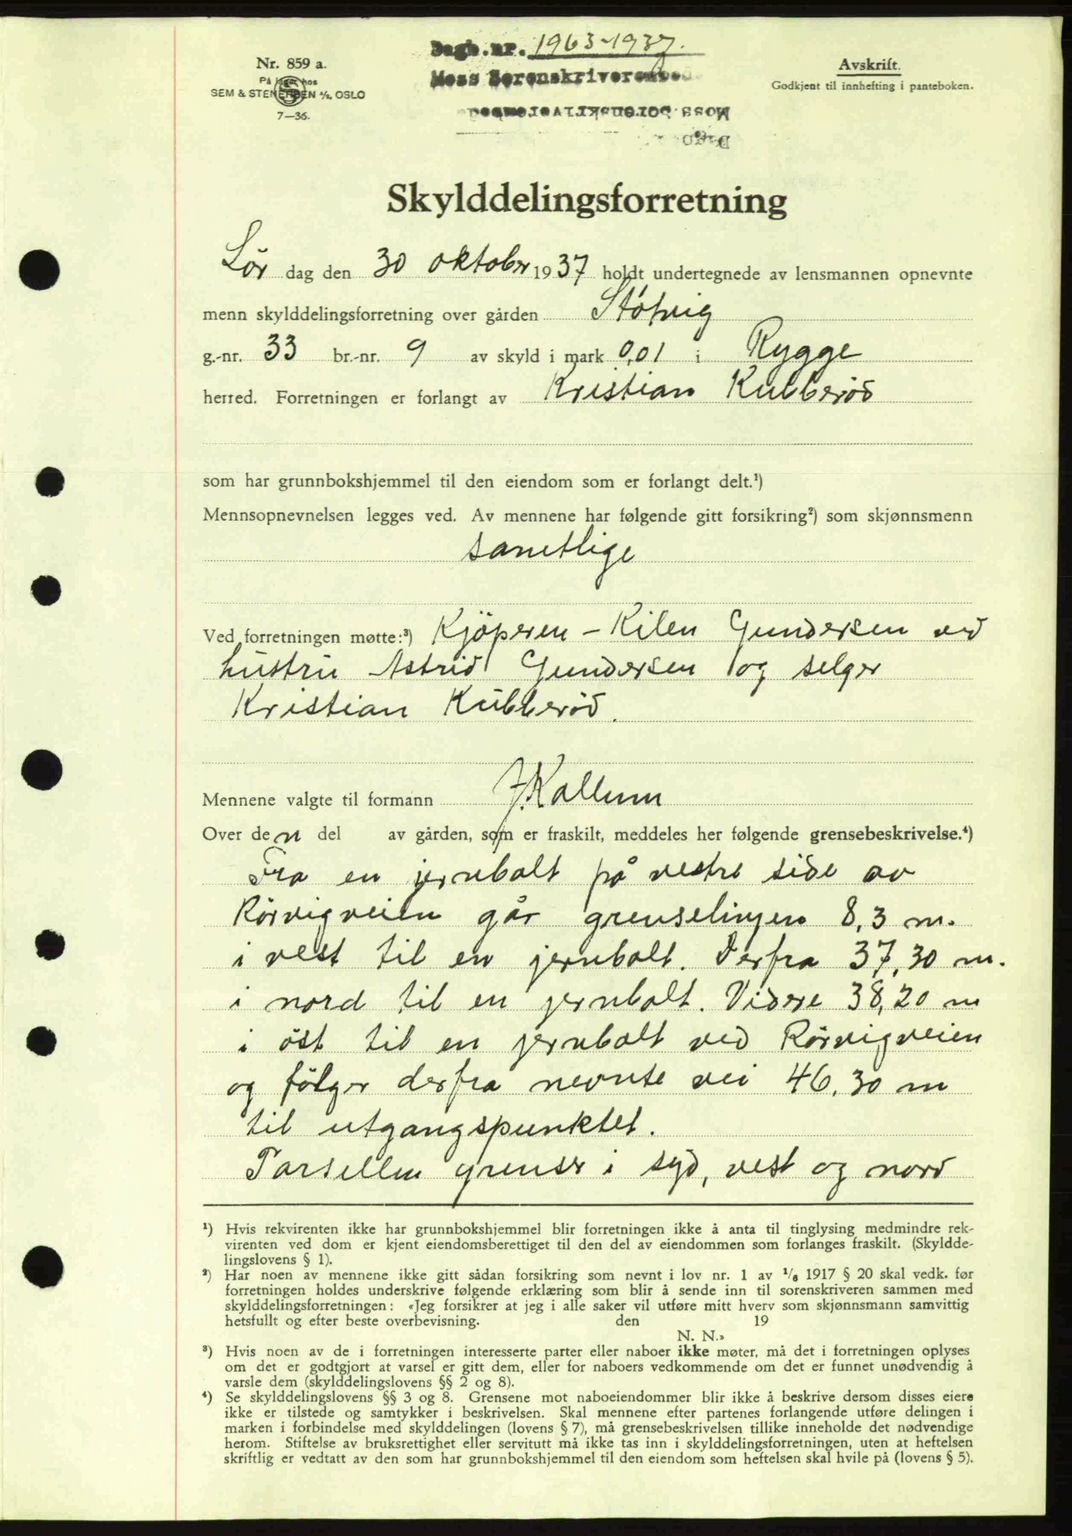 Nr. 859 a.
På lager hos
SEM & STENERSEN A/S, OSLO
7—36.
Dagb.nr. 1963-1937.
Moss Sorenskriverembede
Moss Sorenskriverembede
Avskrift.
Godkjent til innhefting i panteboken.
Skylddelingsforretning
Lör dag den 30 oktober 1937 holdt undertegnede av lensmannen opnevnte
menn skylddelingsforretning over gården Støtvig
g.-nr. 33 br.-nr. 9 av skyld i mark 0,01 i Rygge
herred. Forretningen er forlangt av Kristian Kubberöd
som har grunnbokshjemmel til den eiendom som er forlangt delt.¹)
Mennsopnevnelsen legges ved. Av mennene har følgende gitt forsikring²) som skjønnsmenn
samtlige
Ved forretningen møtte:³) Kjöperen - Kilen Gundersen ved
hustru Astrid Gundersen og selger
Kristian Kubberöd.
Mennene valgte til formann J. Kallum
Over den del av gården, som er fraskilt, meddeles her følgende grensebeskrivelse.⁴)
Fra en jernbolt på vestre side av
Rörvigveien går grenselinjen 8,3 m.
i vest til en jernbolt. Derfra 37,30 m.
i nord til en jernbolt. Videre 38,20 m
i öst til en jernbolt ved Rörvigveien
og fölger derfra nevnte vei 46,30 m
til utgangspunktet.
Parsellen grenser i syd, vest og nord
¹) Hvis rekvirenten ikke har grunnbokshjemmel blir forretningen ikke å anta til tinglysing medmindre rek-
virenten ved dom er kjent eiendomsberettiget til den del av eiendommen som forlanges fraskilt. (Skyldde-
lingslovens § 1).
²) Har noen av mennene ikke gitt sådan forsikring som nevnt i lov nr. 1 av 1/6 1917 § 20 skal vedk. før
forretningen holdes underskrive følgende erklæring som blir å sende inn til sorenskriveren sammen med
skylddelingsforretningen: «Jeg forsikrer at jeg i alle saker vil utføre mitt hverv som skjønnsmann samvittig
hetsfullt og efter beste overbevisning. den 19
N. N.»
³) Hvis noen av de i forretningen interesserte parter eller naboer ikke møter, må det i forretningen oplyses
om det er godtgjort at varsel er gitt dem, eller for naboers vedkommende om det er funnet unødvendig å
varsle dem (skylddelingslovens §§ 2 og 8).
⁴) Se skylddelingslovens §§ 3 og 8. Grensene mot naboeiendommer blir ikke å beskrive dersom disses eiere
ikke er tilstede og samtykker i beskrivelsen. Skal mennene efter partenes forlangende utføre delingen i
marken i forbindelse med skylddelingen (lovens § 7), må grensebeskrivelsen tillike inneholde det nødvendige
herom. Stiftelse av bruksrettighet eller servitutt må ikke tas inn i skylddelingsforretningen, uten at heftelsen
skriftlig er vedtatt av den som har grunnbokshjemmel til den eiendom som heftelsen skal hvile på (lovens § 5).